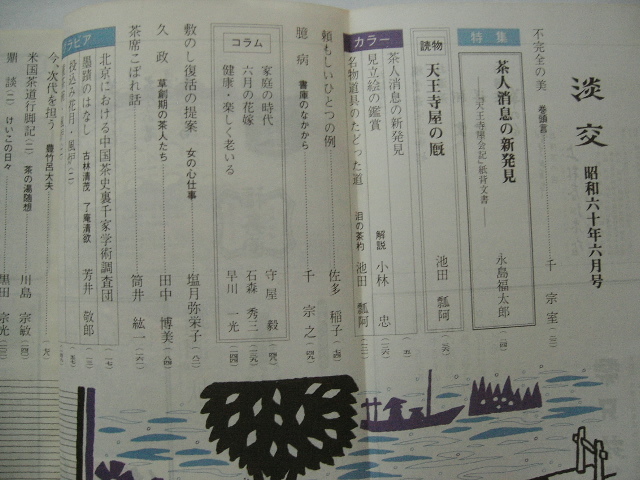 淡交 昭和六十年六月号
不完全の美 巻頭言 千 宗室
特集
茶人消息の新発見 永島福太郎
―『天王寺屋会記』紙背文書―
読物
天王寺屋の厩 池田 瓢阿
カラー
茶人消息の新発見
見立絵の鑑賞 解説 小林 忠
名物道具のたどった道 泪の茶杓 池田 瓢阿
頼もしいひとつの例 佐多 稲子
臆病 書庫のなかから 千 宗之
コラム
家庭の時代 守屋 毅
六月の花嫁 石森 秀三
健康・楽しく老いる 早川 一光
敷のし復活の提案 女の心仕事 塩月弥栄子
久政 草創期の茶人たち 田中 博美
茶席こぼれ話 筒井 紘一
グラビア
北京における中国茶史裏千家学術調査団
墨蹟のはなし 古林清茂 了庵清欲 芳井 敬郎
投込み花月・風炉
今、次代を担う 豊竹呂大夫
米国茶道行脚記(二) 茶の湯随想 川島 宗敏
期談(二) けいこの日々 黒田 宗光